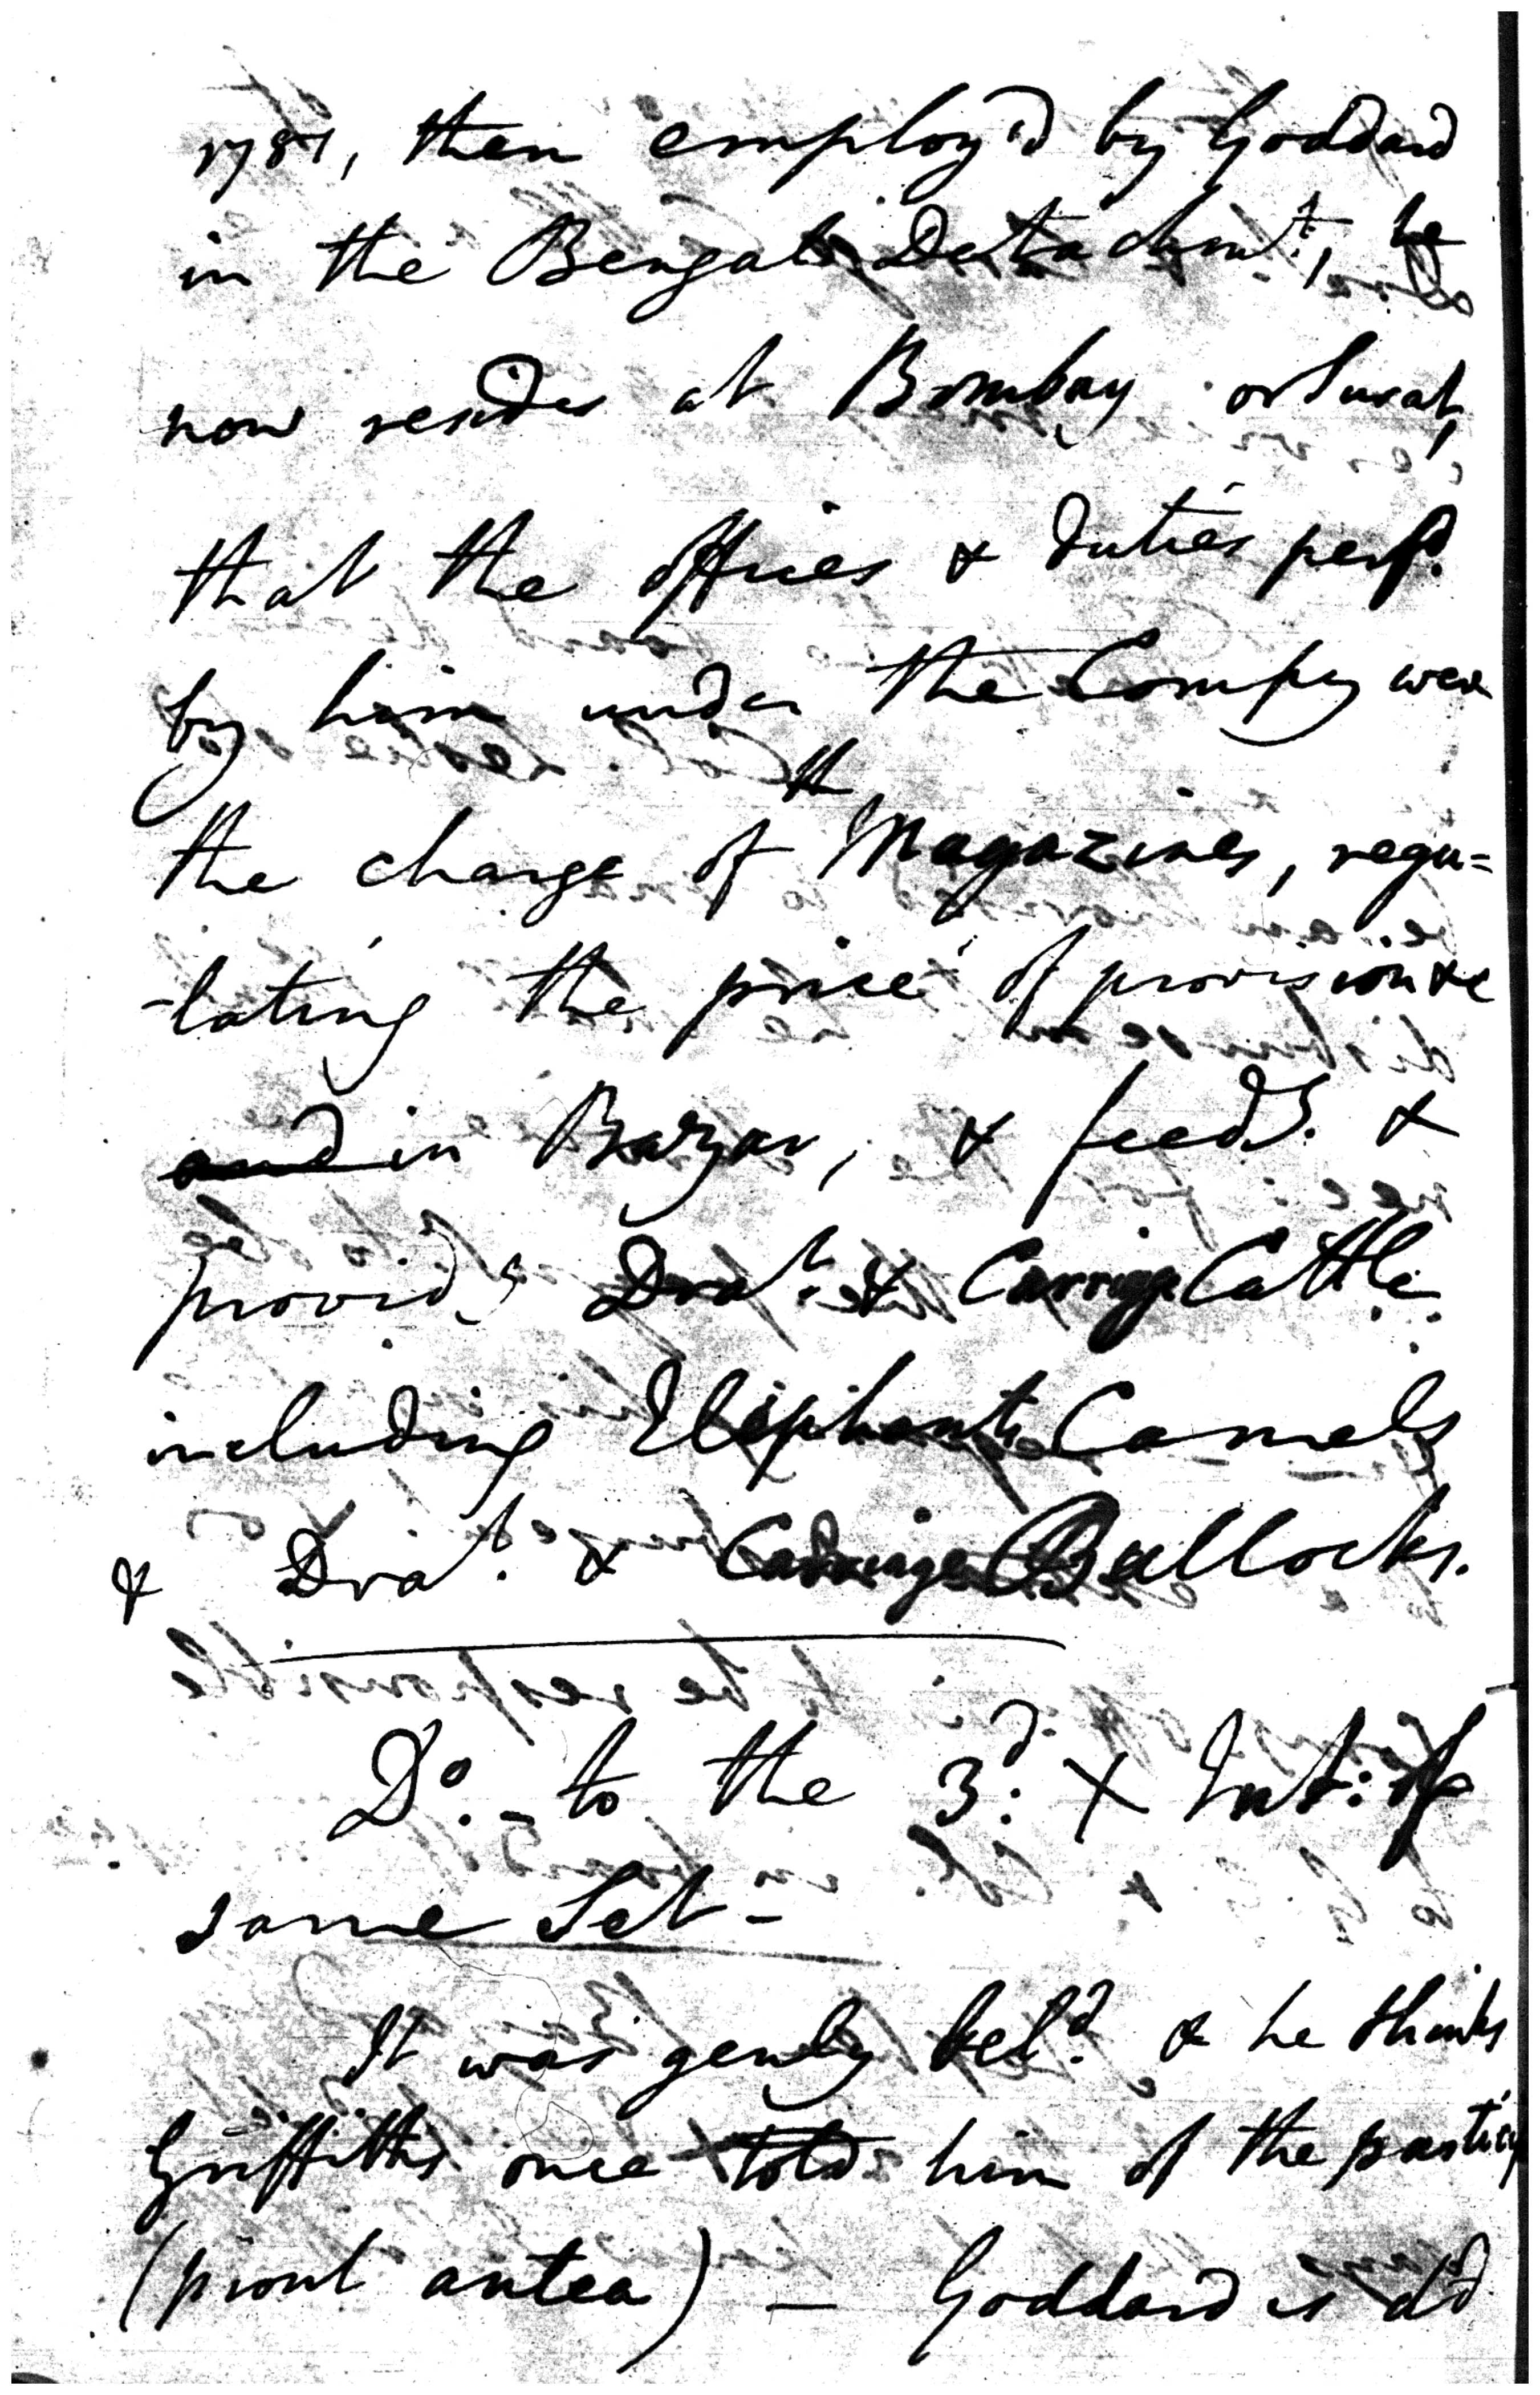 1781, then employ'd by Goddard
in the Bengal Detachmt:, he
now resides at Bombay or Surat,
that the offices & duties perfd.
by him under the Compy were
the charge of th Magazines, regu=
-lating the price of provision &c
and in Bazar, & feedg. &
providg Drat. & Carriage Cattle
including Elephants Camels
& Drat. & Carriage Bullocks.
Do. - to the 3d: X Int: of
same Set -
It was genly beld. & he thinks
Griffiths once told him of the
(prout antea) - Goddard is dd